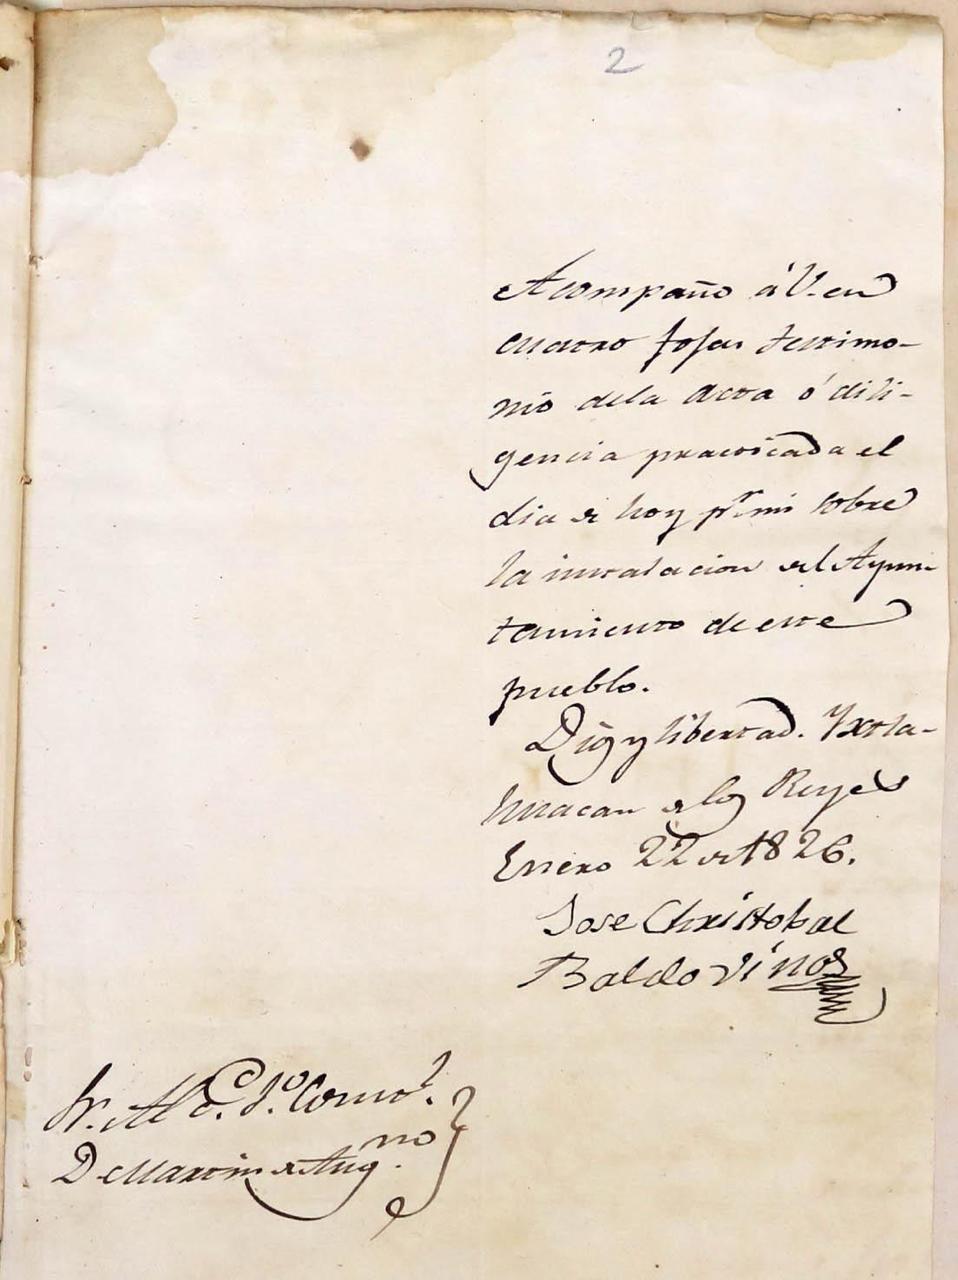 2
Acompaño á V. en
cuatro fojas testimo-
nio dela acta ó dili-
gencia practicada el
dia de hoy pr. mi sobre
la instalacion del Ayun-
tamiento de este
pueblo.
Dios y libertad. Yxtla-
huacan de los Reyes
Enero 22 de 1826.
Jose Christobal
Baldovínos
Sr. Alce. 1o. Comol.
D Martin de Augno.